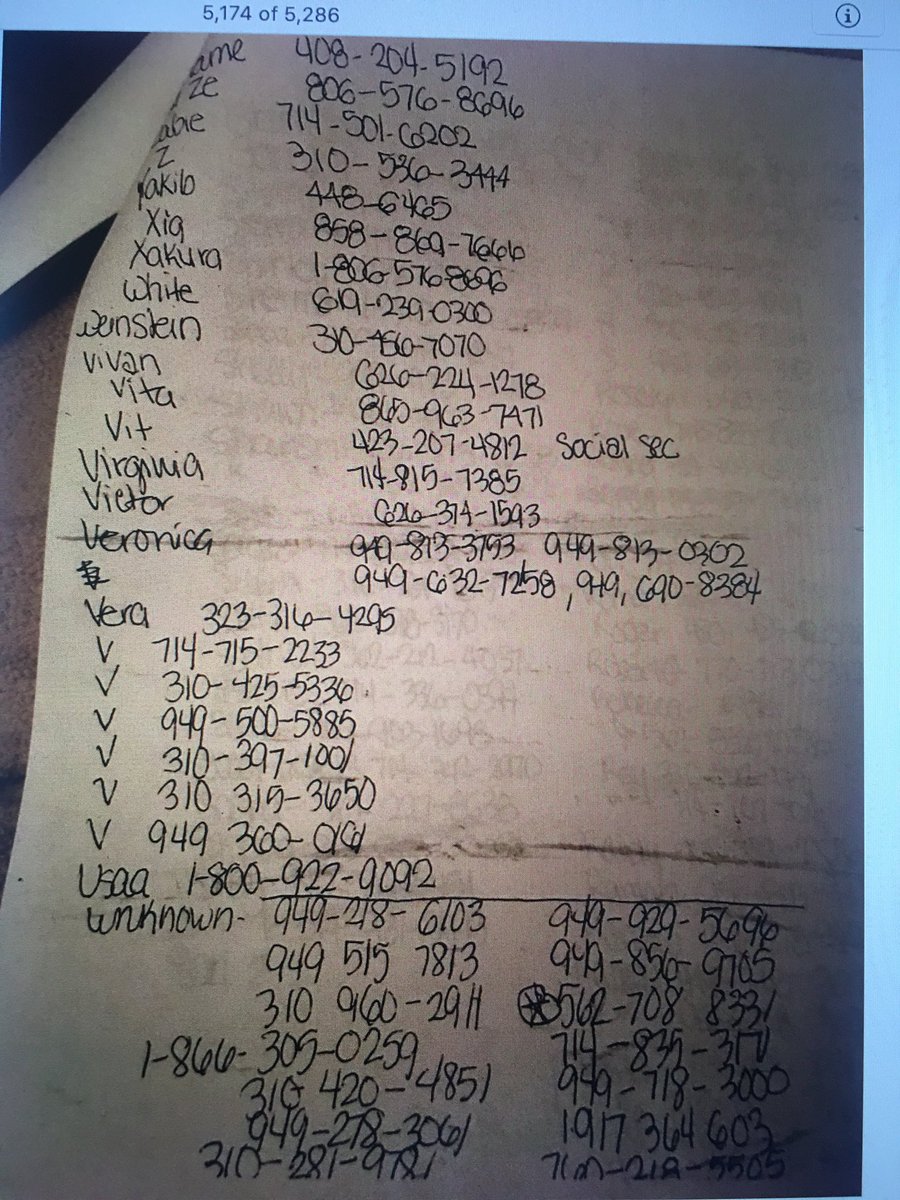 5,174 of 5,286
ame 408-204-5192
ze 806-576-8696
abie 714-501-6202
Z 310-536-3444
Yakilo 448-6465
Xia 858-869-7666
Xakura 1-806-576-8696
White 619-239-0300
Weinstein 310-456-7070
Vivan 626-224-1278
Vita 865-963-7471
Vit 423-207-4812 Social Sec
Virginia 714-815-7385
Victor 626-374-1593
Veronica 949-813-3793 949-813-0302
949-632-7258, 949, 690-8384
Vera 323-316-4295
V 714-715-2233
V 310-425-5336
V 949-500-5885
V 310-397-1001
V 310 315-3650
V 949 360-0161
Usaa 1-800-922-9092
Unknown- 949-218-6103 949-929-5696
949 515 7813 949-856-9705
310 960-2911 562-708 8331
1-866-305-0259 714-835-3171
310 420-4851 949-718-3000
949-278-3061 1917 364 603
310-281-9781